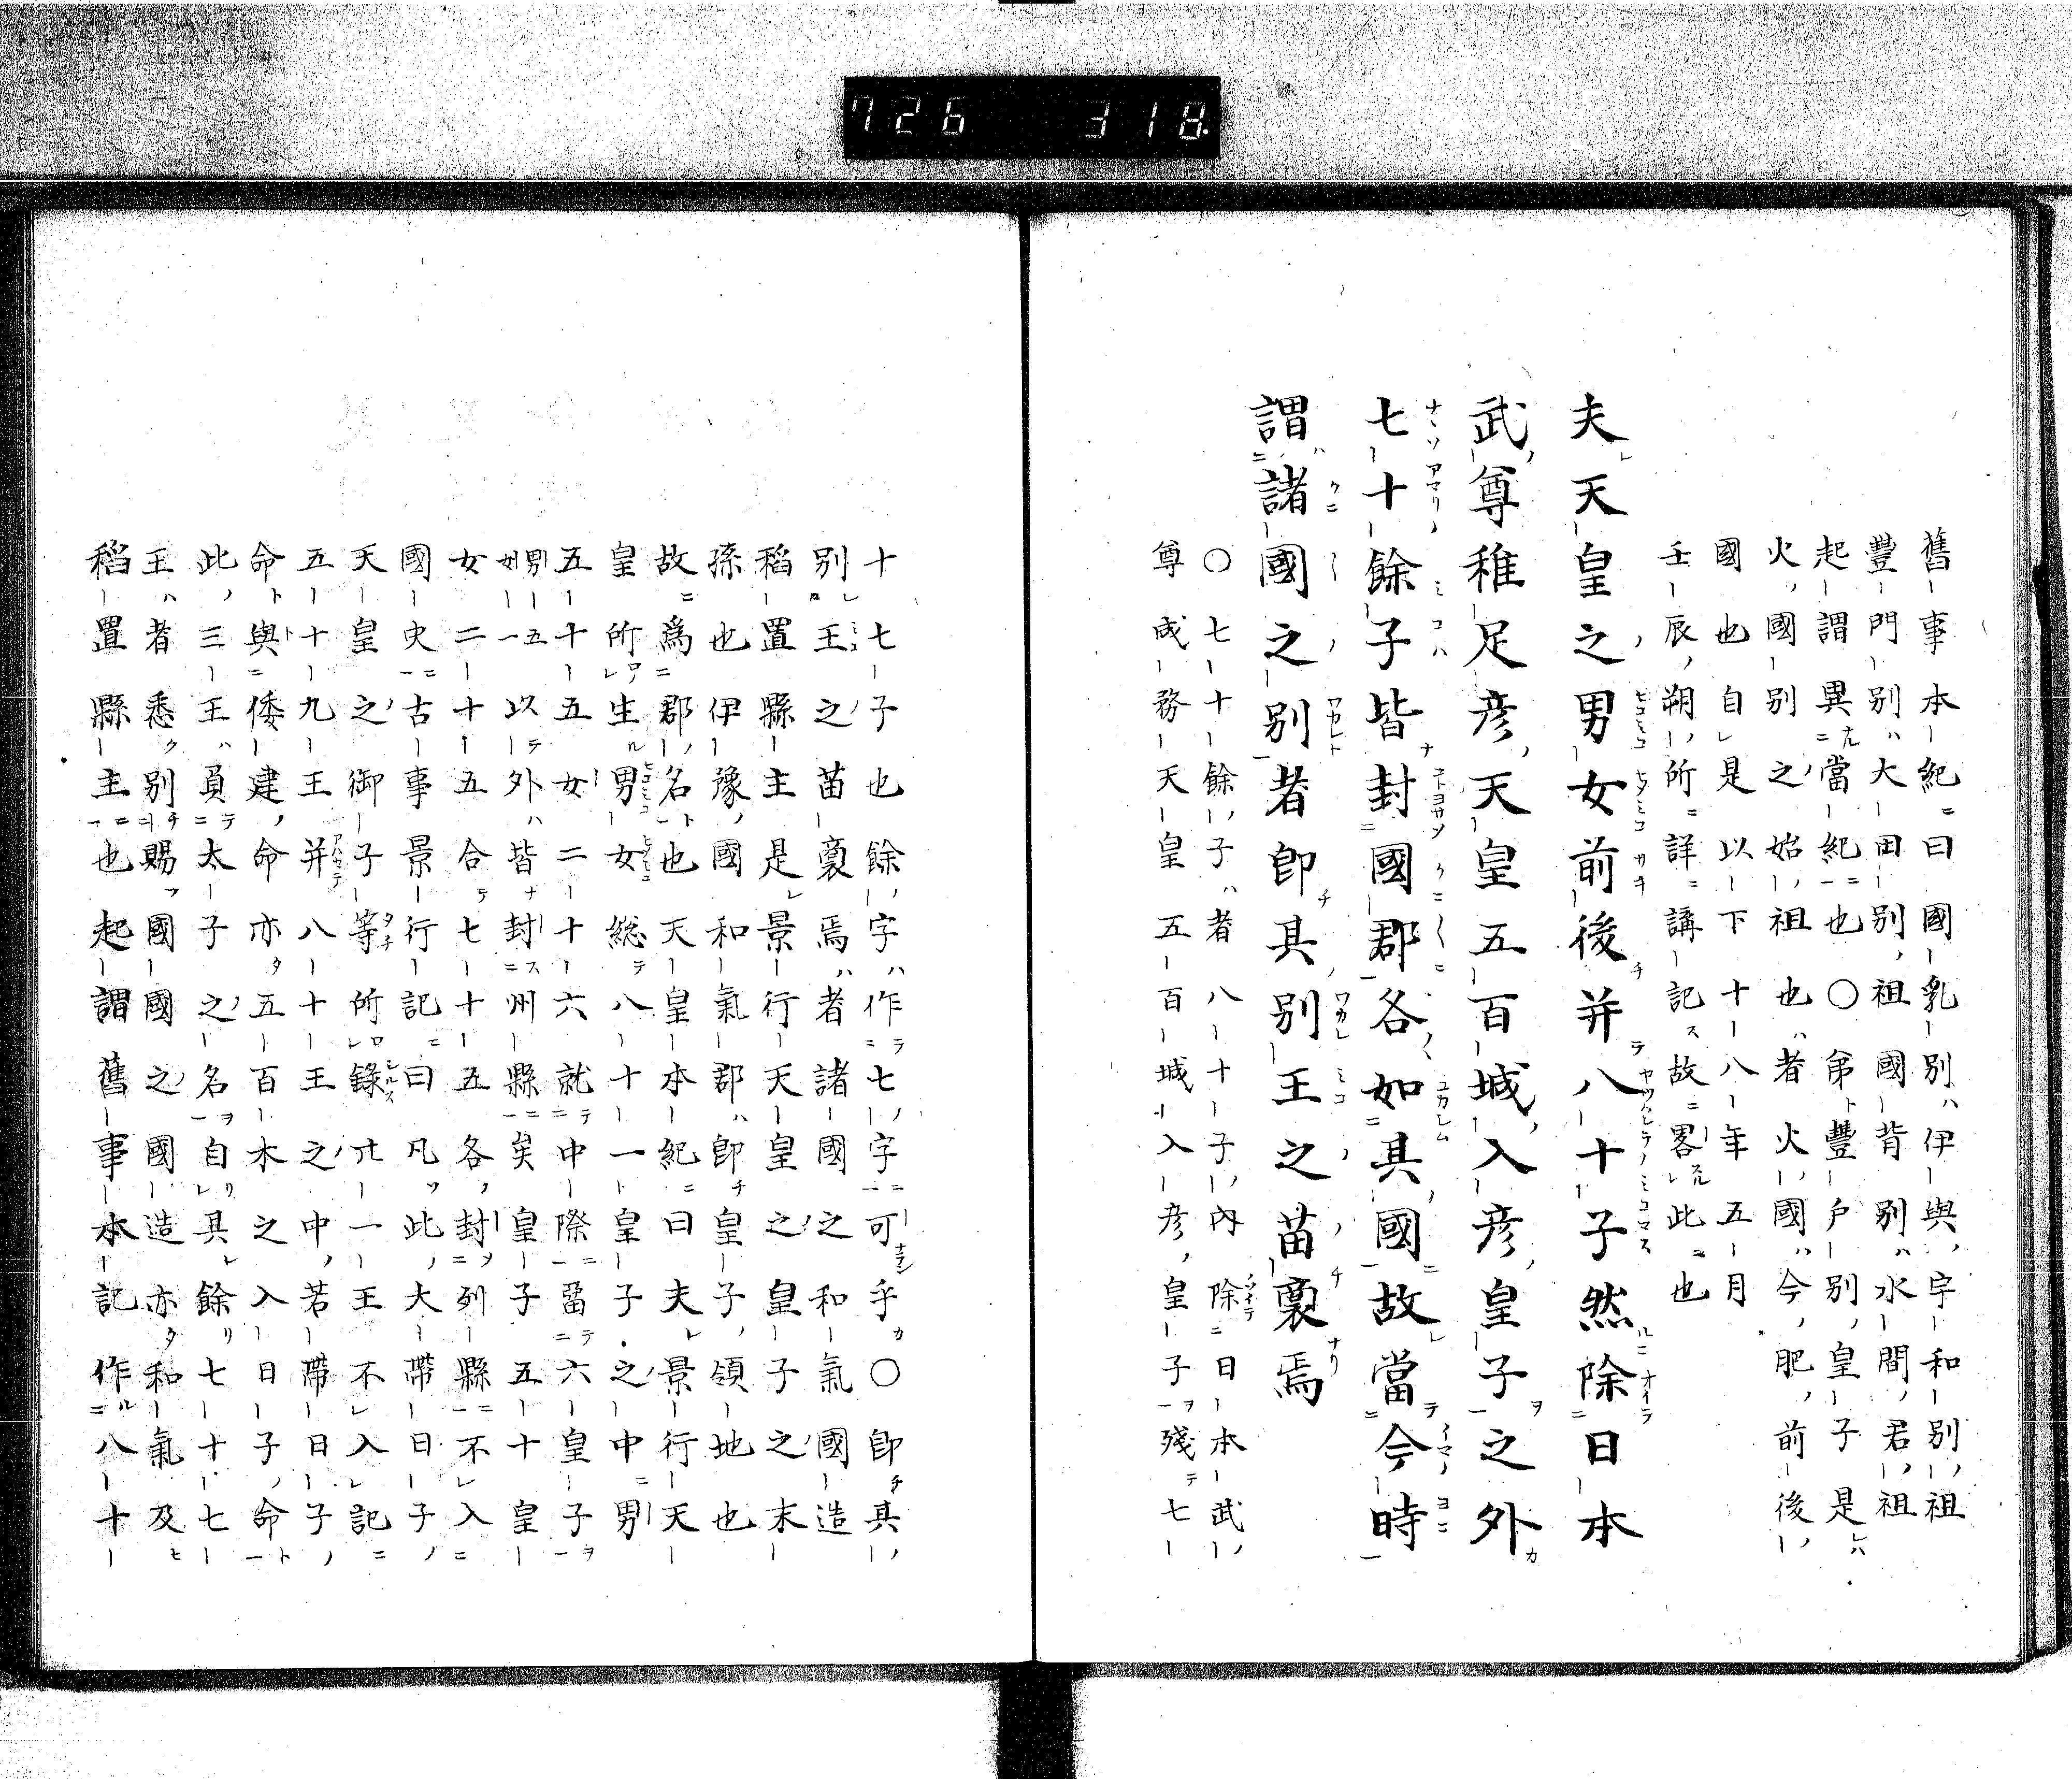 726 318
舊事本紀曰國乳別伊與宇和別祖
豐門別大田別祖國背別水間君祖
起謂異當紀也○第豐戶別皇子是
火國別之始祖也者火國今肥前後
國也自是以下十八年五月
壬辰朔所詳講記故畧此也
夫天皇之男女前後并八十子然除日本
武尊稚足彥天皇五百城入彥皇子之外
七十餘子皆封國郡各如其國故當今時
謂諸國之別者卽其別王之苗裔焉
○七十餘子者八十子內除日本武
尊成務天皇五百城入彥皇子殘七
十七子也餘字作七字可乎○卽其
別王之苗裔焉者諸國之和氣國造
稻置縣主是景行天皇之皇子之末
孫也伊豫國和氣郡卽皇子領地也
故爲郡名也天皇本紀曰夫景行天
皇所生男女総八十一皇子之中男
五十五女二十六就中際留六皇子
男五女一以外皆封州縣矣皇子五十皇
女二十五合七十五各封列縣不入
國史古事景行記曰凡此大帶日子
天皇之御子等所錄廿一王不入記
五十九王并八十王之中若帶日子
命與倭建命亦五百木之入日子命
此三王負太子之名自其餘七十七
王者悉別賜國國之國造亦和氣及
稻置縣主也起謂舊事本記作八十